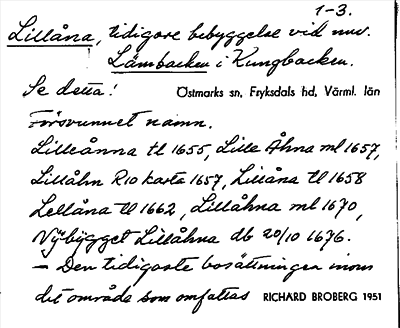 1-3.
Lillåna, tidigare bebyggelse vid nuv.
Lámbacken i Kungbacken.
Se detta! Östmarks sn, Fryksdals hd, Värml. län
Försvunnet namn.
Lilleånna tl 1655, Lille Åhna ml 1657,
Lillåhn R10 karta 1657, Lillåna tl 1658
Lellåna tl 1662, Lillåhna ml 1670,
Nÿbÿgget Lillåhna db 20/10 1676.
– Den tidigaste bosättningen inom
det område som omfattas RICHARD BROBERG 1951